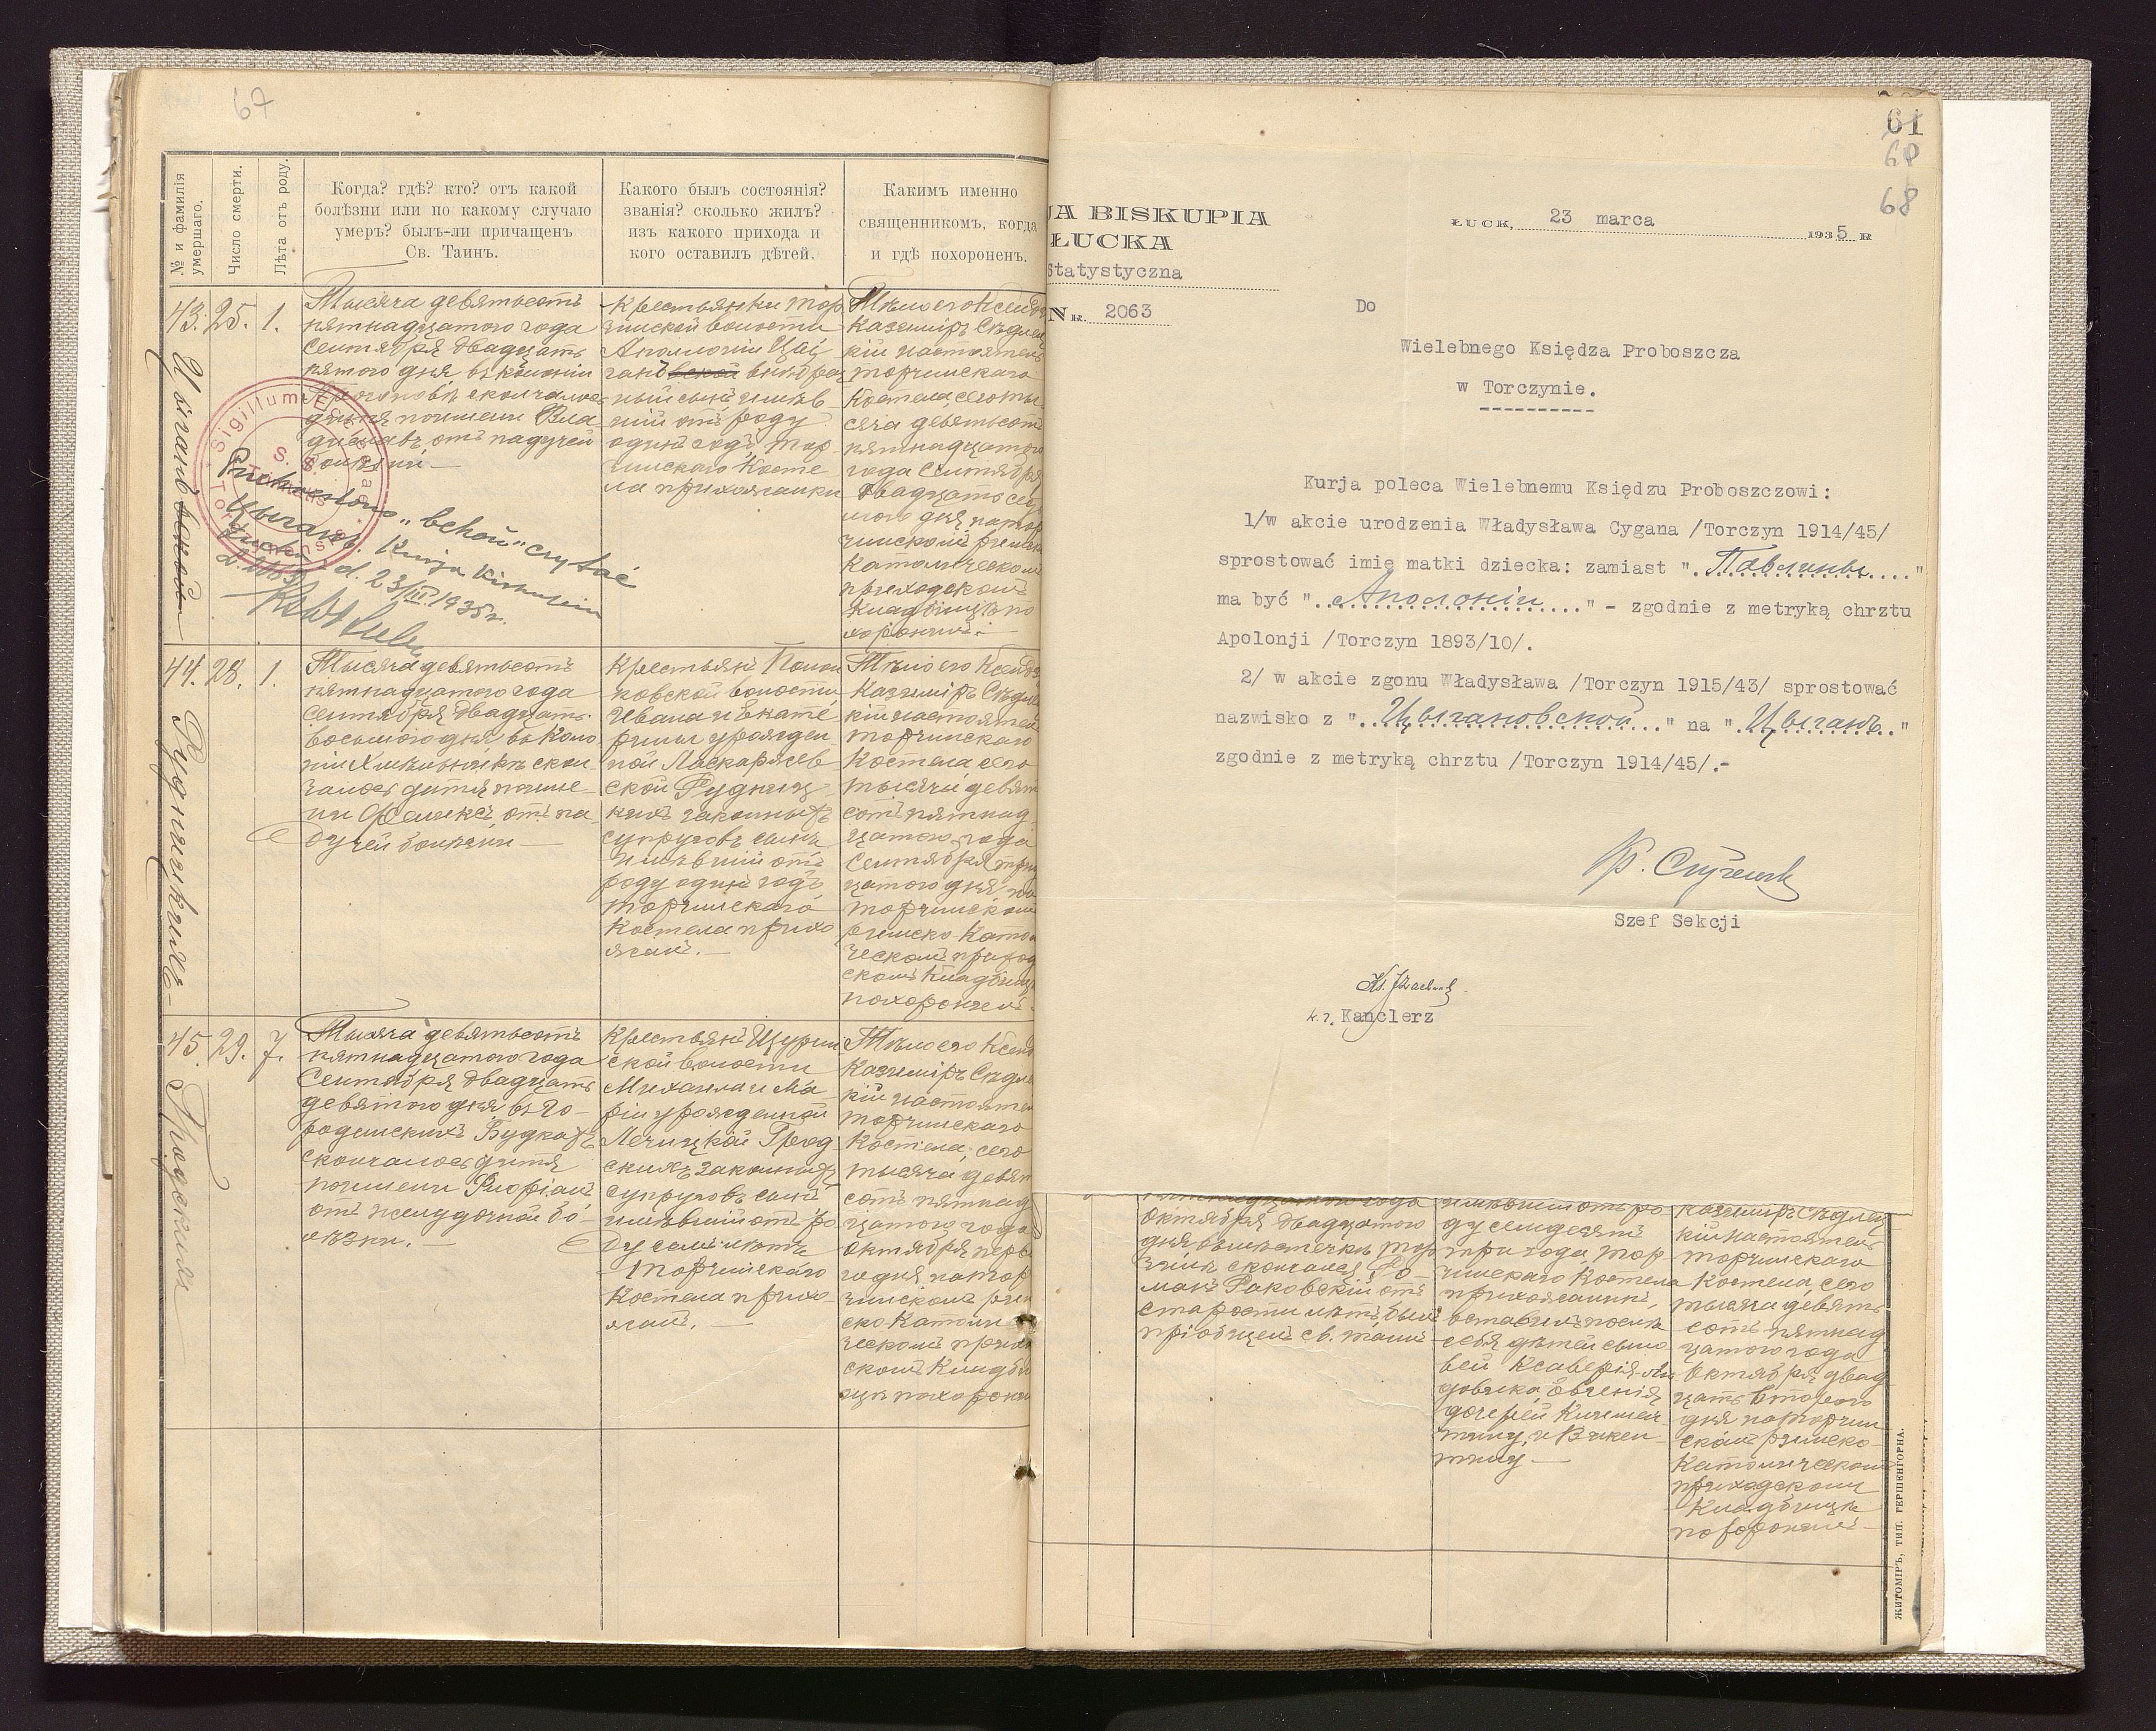 67
№ и фамилія умершаго.
Число смерти.
Лѣта отъ роду.
Когда? гдѣ? кто? отъ какой
болѣзни или по какому случаю
умеръ? былъ-ли причащенъ
Св. Таинъ.
Какого былъ состоянія?
званія? сколько жилъ?
изъ какого прихода и
кого оставилъ дѣтей.
Какимъ именно
священникомъ, когда
и гдѣ похороненъ.
43. 25. 1.
Тысяча девятьсотъ
пятнадцатого года
Сентября двадцать
пятого дня въ колоніи
скончалось
дитя по имени Вла
диславъ отъ падучей
болѣзни
Крестьянки Тор
чинской волости
Аполлоніи Цы
ганъ
ный сынъ имѣв
шій отъ роду
одинъ годъ, Тор
чинскаго Косте
ла прихожанки
Тѣло его Ксендзъ
Казиміръ Сѣдлец
кій настоятель
Торчинскаго
Костела, сего ты
сяча девятьсотъ
пятнадцатого
года Сентября
двадцать седь
мого дня на Тор
чинскомъ римско
Католическомъ
приходскомъ
Кладбищѣ по
хоронилъ
Sigillum Ecclesiae
S. S.
Trinitatis
czytać
Цыганъ. Kurja Biskupia
d. 23/III.1935r.
L. 2063
44. 28. 1.
Рудницкій
Тысяча девятьсотъ
пятнадцатого года
Сентября двадцать
восьмого дня въ Коло
ніи скон
чалось дитя по име
ни Феликсъ, отъ па
дучей болѣзни
Крестьянъ
ковской волости
Ивана и Екате
рины урожден
ной
ской Рудниц
кихъ законныхъ
супруговъ сынъ
имѣвшій отъ
роду одинъ годъ
Торчинскаго
Костела прихо
жанъ.
Тѣло его Ксендзъ
Казиміръ Сѣдлец
кій настоятель
Торчинскаго
Костела сего
тысяча девять
сотъ пятнад
цатого года
Сентября трид
цатого дня на
Торчинскомъ
римско Катол
ическомъ приход
скомъ Кладбищѣ
похоронилъ
45. 29. 7.
Гродскій
Тысяча девятьсотъ
пятнадцатого года
Сентября двадцать
девятого дня въ Го
родинскихъ Будкахъ
скончалось дитя
по имени Флоріанъ
отъ желудочной бо
лѣзни.
Крестьянъ Щурин
ской волости
Михаила и Ма
ріи урожденной
Грод
скихъ законныхъ
супруговъ сынъ
имѣвшій отъ ро
ду семь лѣтъ
Торчинскаго
Костела прихо
жанъ.
Тѣло его Ксендзъ
Казиміръ Сѣдлец
кій настоятель
Торчинскаго
Костела, сего
тысяча девять
сотъ пятнад
цатого года
Октября перв
го дня на Тор
чинскомъ рим
ско-Католи
ческомъ приход
скомъ Кладби
щѣ похоронилъ
61
68
JA BISKUPIA
ŁUCKA
Statystyczna
Nr. 2063
ŁUCK, 23 marca 1935 R
Do
Wielebnego Księdza Proboszcza
w Torczynie.
Kurja poleca Wielebnemu Księdzu Proboszczowi:
1/w akcie urodzenia Władysława Cygana /Torczyn 1914/45/
sprostować imię matki dziecka: zamiast "Павлины"
ma być "Аполоніи" - zgodnie z metryką chrztu
Apolonji /Torczyn 1893/10/.
2/ w akcie zgonu Władysława /Torczyn 1915/43/ sprostować
nazwisko z "Цыгановской" na "Цыганъ"
zgodnie z metryką chrztu /Torczyn 1914/45/.-
Szef Sekcji
Kanclerz
Октября двадцатого
дня въ мѣстечкѣ Тор
чинѣ скончался Ро
манъ Раковскій отъ
старости лѣтъ, былъ
пріобщенъ св. таинъ
имѣвшій отъ ро
ду семдесятъ
три года, Тор
чинскаго Костела
прихожанинъ,
оставилъ послѣ
себя дѣтей сыно
вей Ксаверія, Лю
довика, Евгенія
дочерей Клемен
тину, и Викен
тину
Казиміръ Сѣдлец
кій настоятель
Торчинскаго
Костела, сего
тысяча девять
сотъ пятнад
цатого года
Октября двад
цать второго
дня на Торчин
скомъ римско
Католическомъ
приходскомъ
Кладбищѣ
похоронилъ
ЖИТОМІРЪ, ТИП. ГЕРШЕНГОРНА.